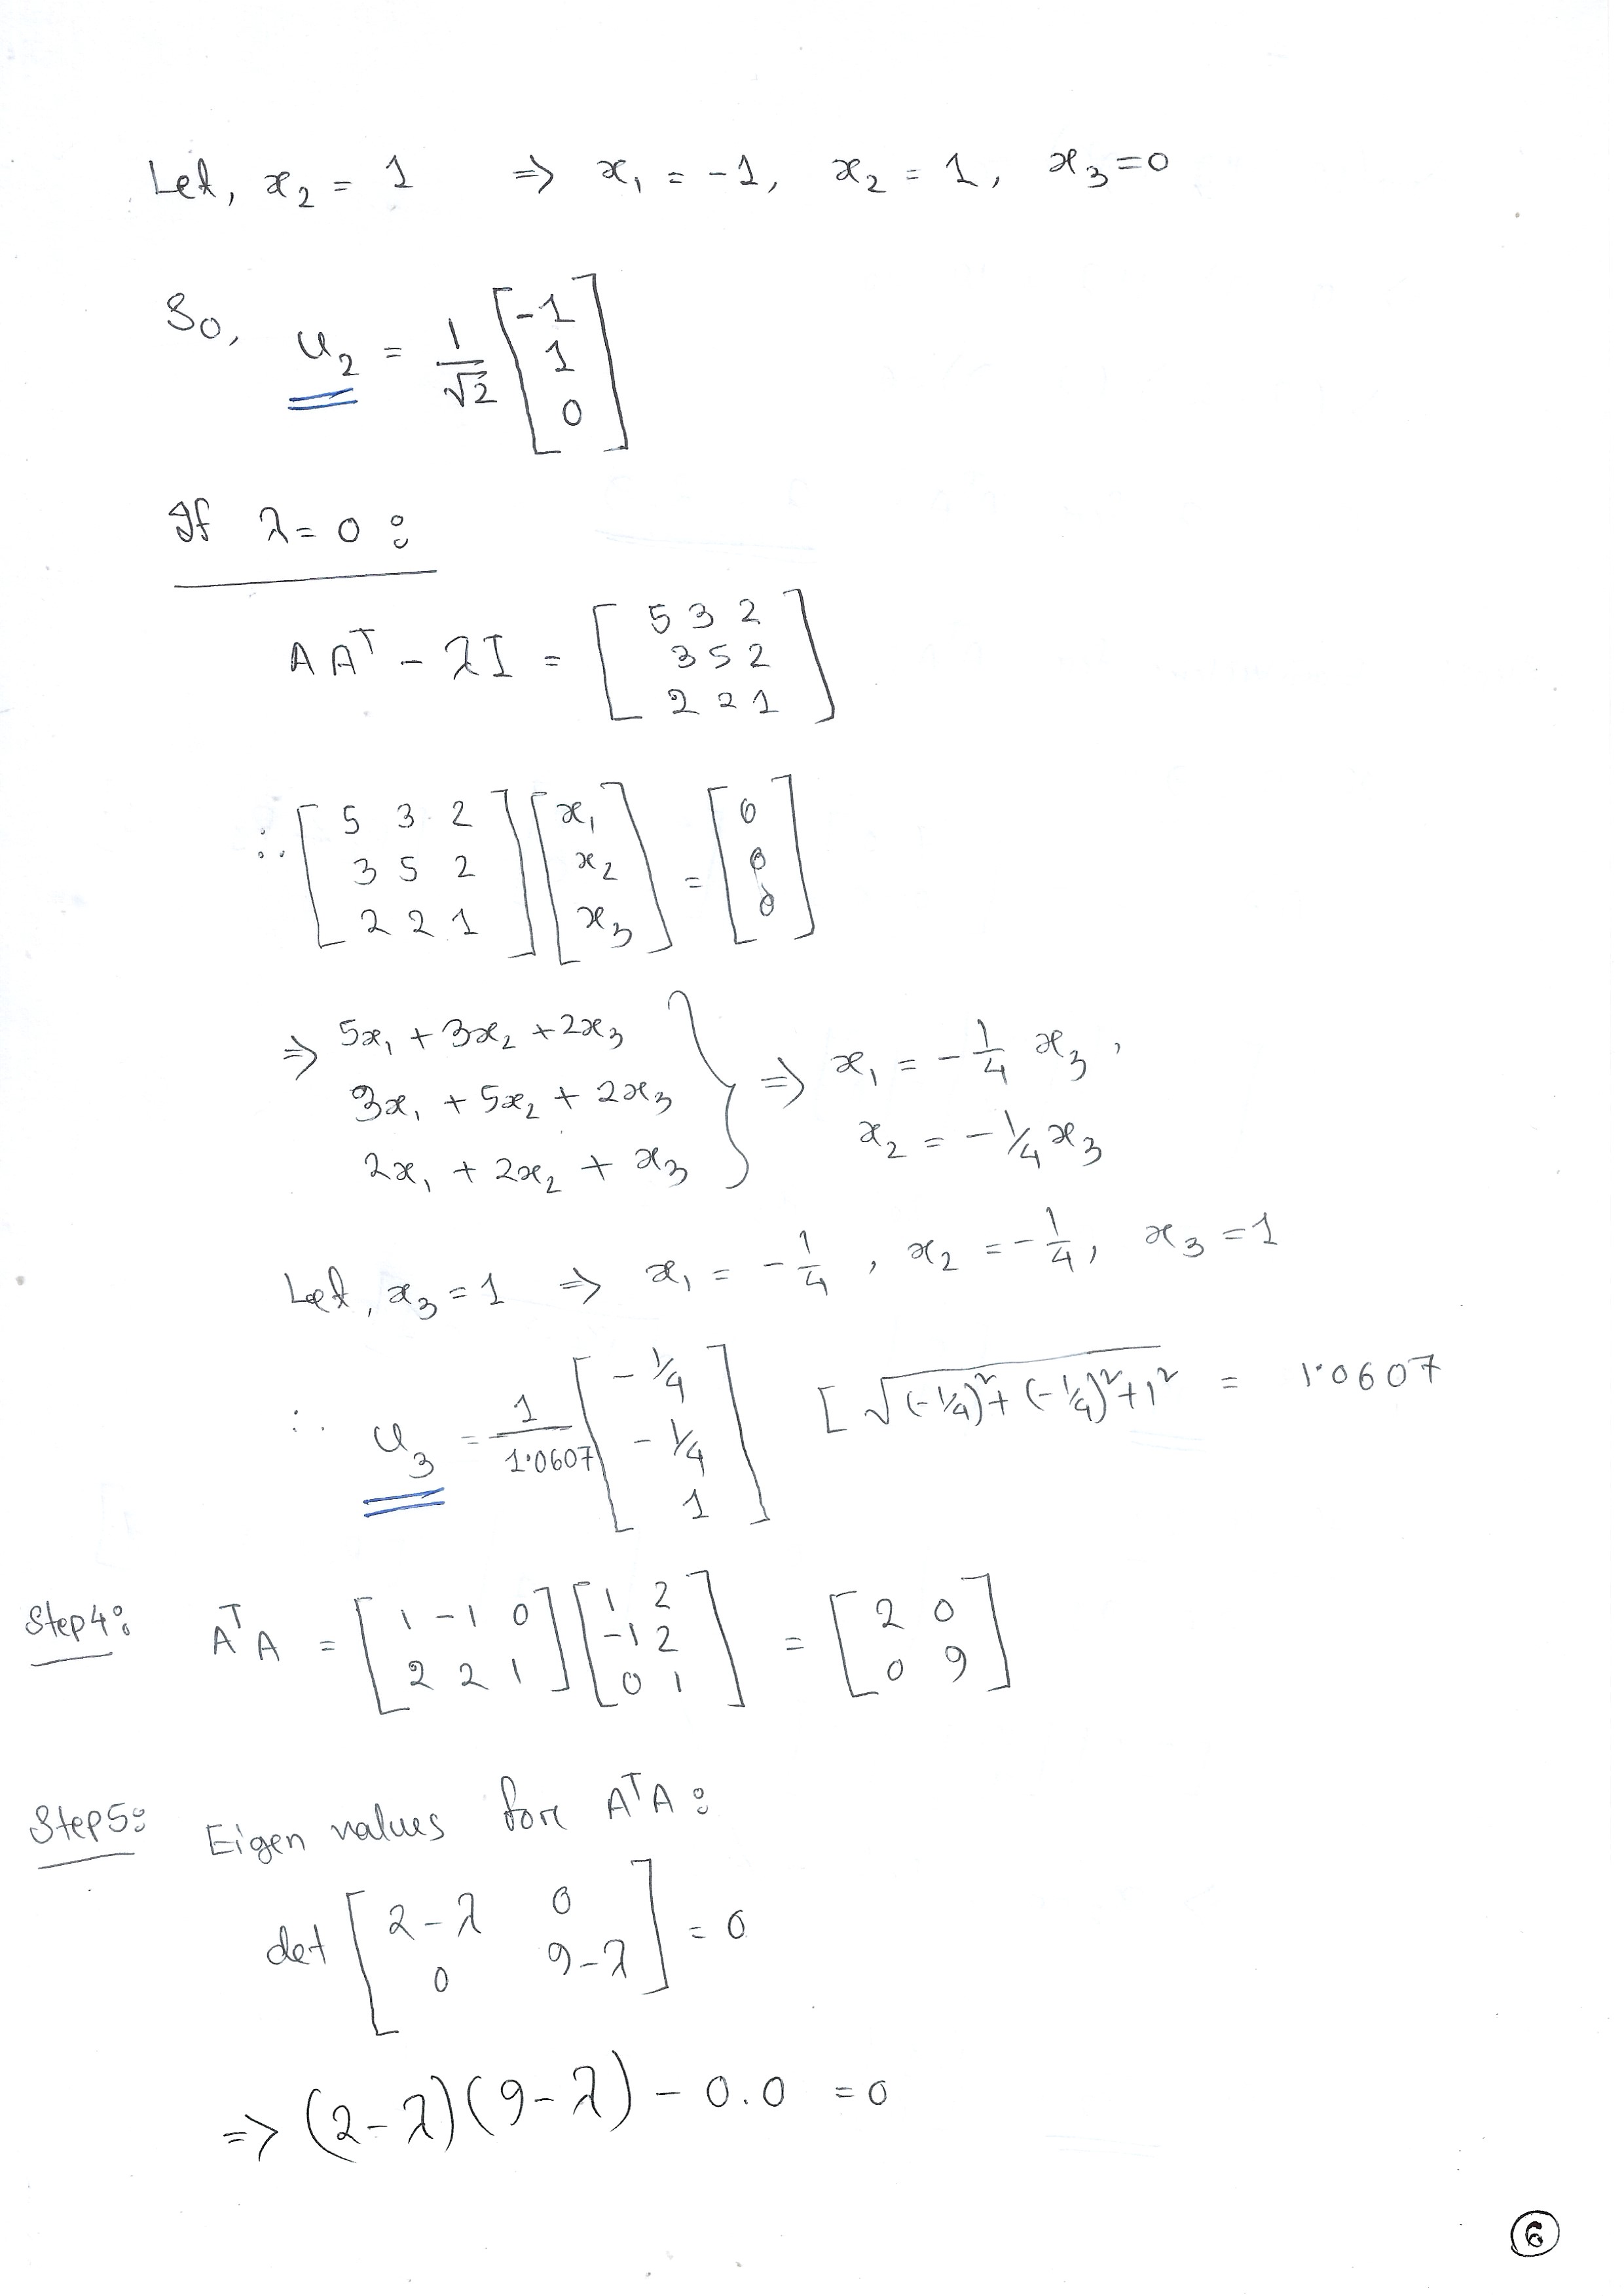 Let, x₂ = 1 ⇒ x₁ = -1, x₂ = 1, x₃ = 0
So, u₂ = 1/√2 [-1 1 0]
If λ = 0 :
A Aᵀ - λI = [5 3 2
3 5 2
2 2 1]
∴ [5 3 2
3 5 2
2 2 1] [x₁ x₂ x₃] = [0 0 0]
⇒ 5x₁ + 3x₂ + 2x₃
3x₁ + 5x₂ + 2x₃
2x₁ + 2x₂ + x₃
} ⇒ x₁ = -1/4 x₃,
x₂ = -1/4 x₃
Let, x₃ = 1 ⇒ x₁ = -1/4, x₂ = -1/4, x₃ = 1
∴ u₃ = 1/1.0607 [-1/4 -1/4 1] [√(-1/4)²+(-1/4)²+1² = 1.0607
Step 4: AᵀA = [1 -1 0
2 2 1] [1 2
-1 2
0 1] = [2 0
0 9]
Step 5: Eigen values fore AᵀA :
det [2-λ 0
0 9-λ] = 0
⇒ (2-λ)(9-λ) - 0.0 = 0
6